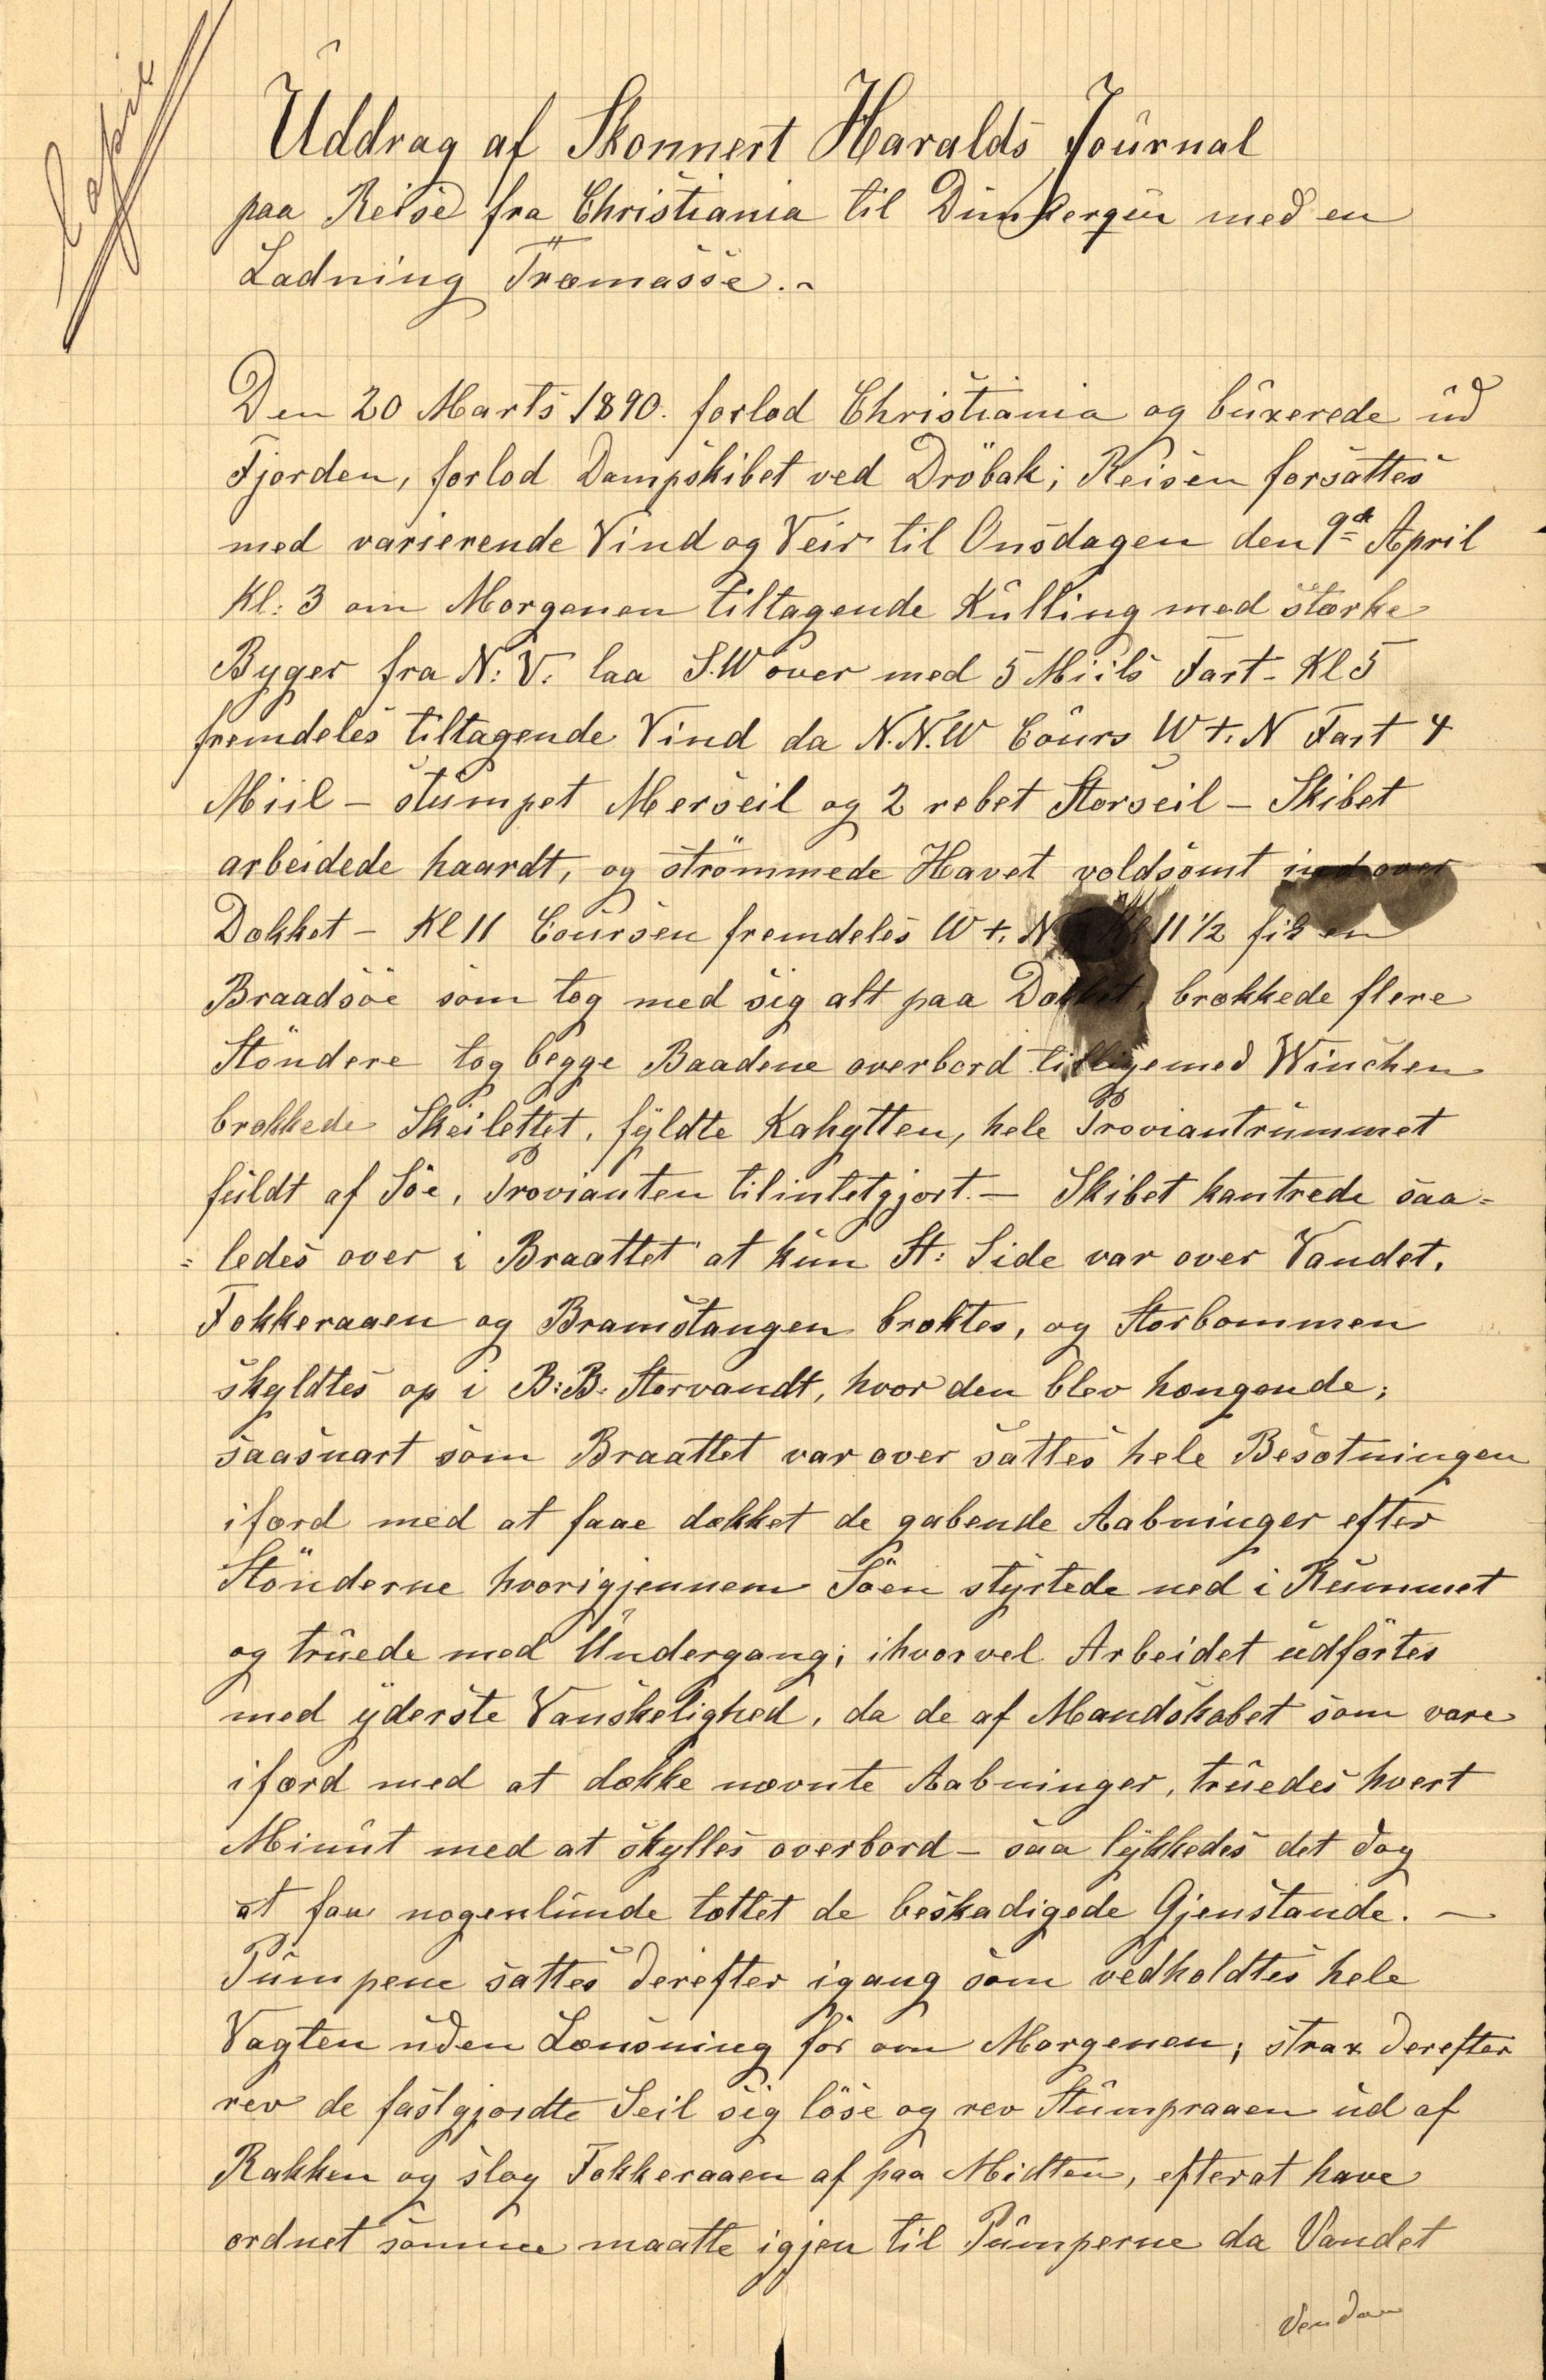 Uddrag af Skonnert Haralds Journal
paa Reise fra Christiania til Dunkerqen med en
Ladning Træmasse. -
Den 20 Marts 1890. forlod Christiania og buxerede ud
Fjorden, forlod Dampskibet ved Dröbak; Reisen forsattes
med varierende Vind og Veir til Onsdagen den 9de April
Kl: 3 om Morgenen tiltagende Kulling med stærke
Byger fra N: V. laa S.W over med 5 Miils Fart - Kl 5
fremdeles tiltagende Vind da N.N.W Cours W t. N Fart 4
Miil - stumpet Merseil og 2 rebet Storseil - Skibet
arbeidede haardt, og strömmede Havet voldsomt ind over
Dækket - Kl 11 Coursen fremdeles W t. N Kl 11 1/2 fik en
Braadsöe som tog med sig alt paa Dækket, brækkede flere
Stöndere tog begge Baadene overbord tilligemed Winchen
brækkede Skeilettet, fyldte Kahytten, hele Proviantrummet
fuldt af Söe, Provianten tilintetgjort. - Skibet kantrede saa=
=ledes over i Braattet at kun St: Side var over Vandet.
Fokkeraaen og Bramstangen bræktes, og Storbommen
skyldtes op i B:B. Storvandt, hvor den blev hængende;
saasnart som Braattet var over sattes hele Besætningen
ifærd med at faae dækket de gabende Aabninger efter
Stönderne hvorigjennem Söen styrtede ned i Rummet
og truede med Undergang; ihvorvel Arbeidet udförtes
med yderste Vanskelighed, da de af Mandskabet som vare
ifærd med at dække nævnte Aabninger, truedes hvert
Minut med at skylles overbord - saa lykkedes det dog
at faa nogenlunde tættet de beskadigede Gjenstande. -
Pumpene sattes derefter igang som vedholdtes hele
Vagten uden Lænsning för om Morgenen; strax derefter
rev de fastgjordte Seil sig löse og rev Stumpraaen ud af
Rakken og slog Fokkeraaen af paa Midten, efterat have
ordnet samme maatte igjen til Pumperne da Vandet